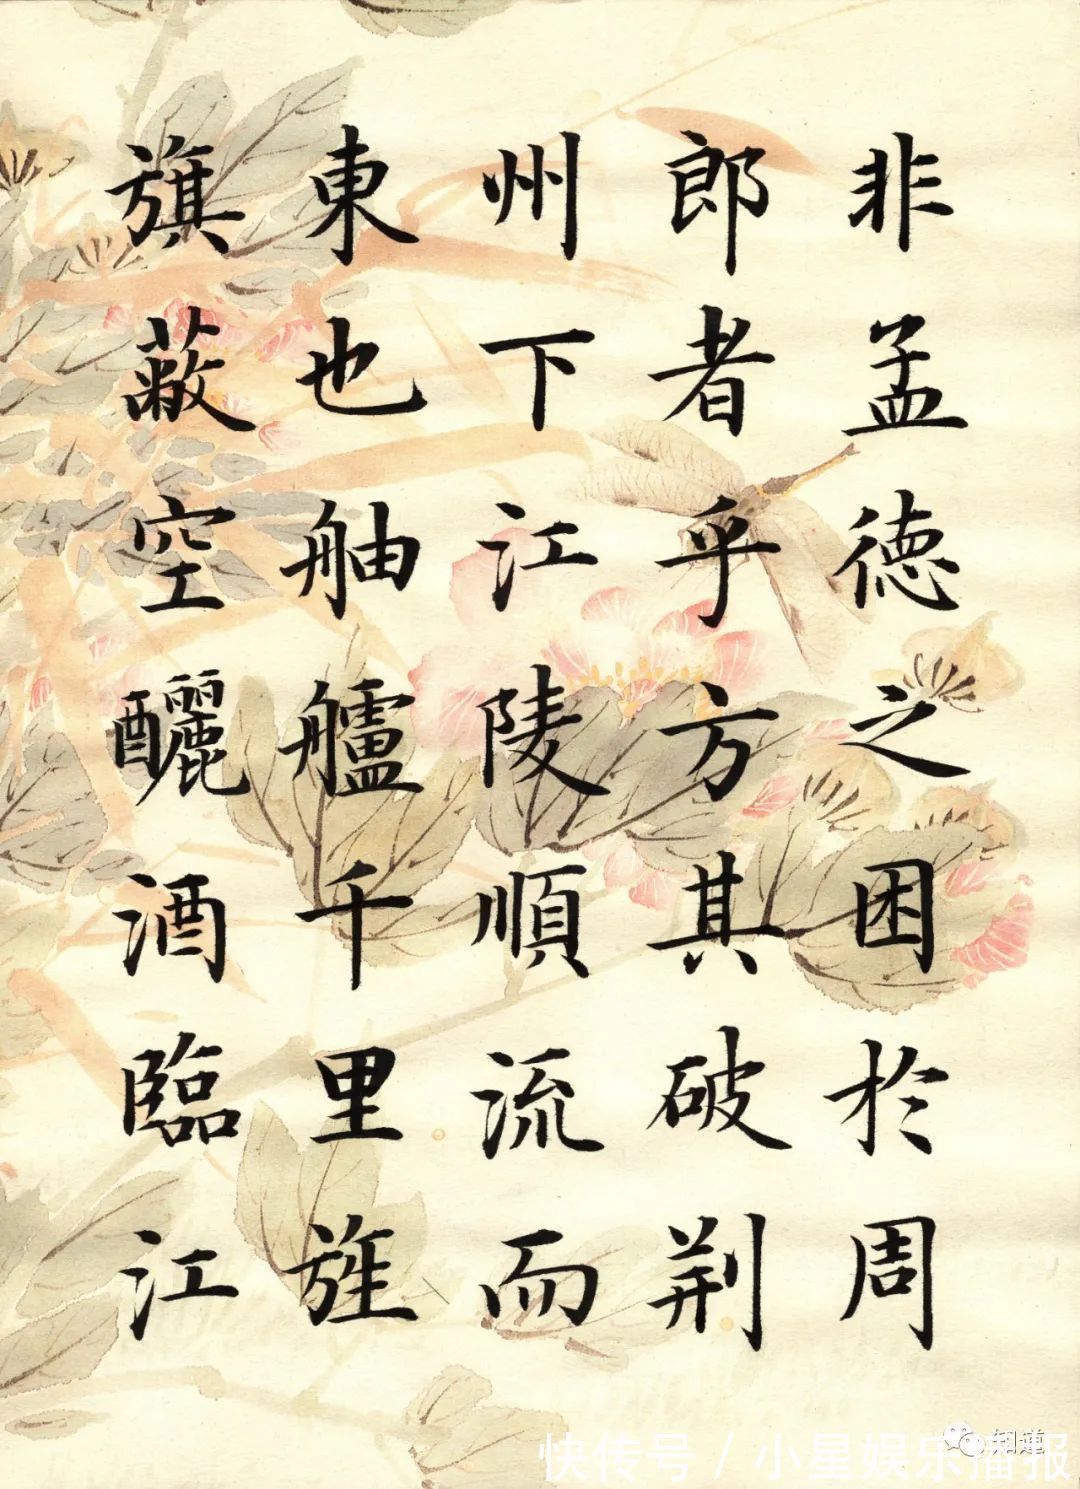 非孟德之困於周
郎者乎方其破荆
州下江陵順流而
東也舳艫千里旌
旗蔽空釃酒臨江
知蓮
快传号／小星娱乐播报